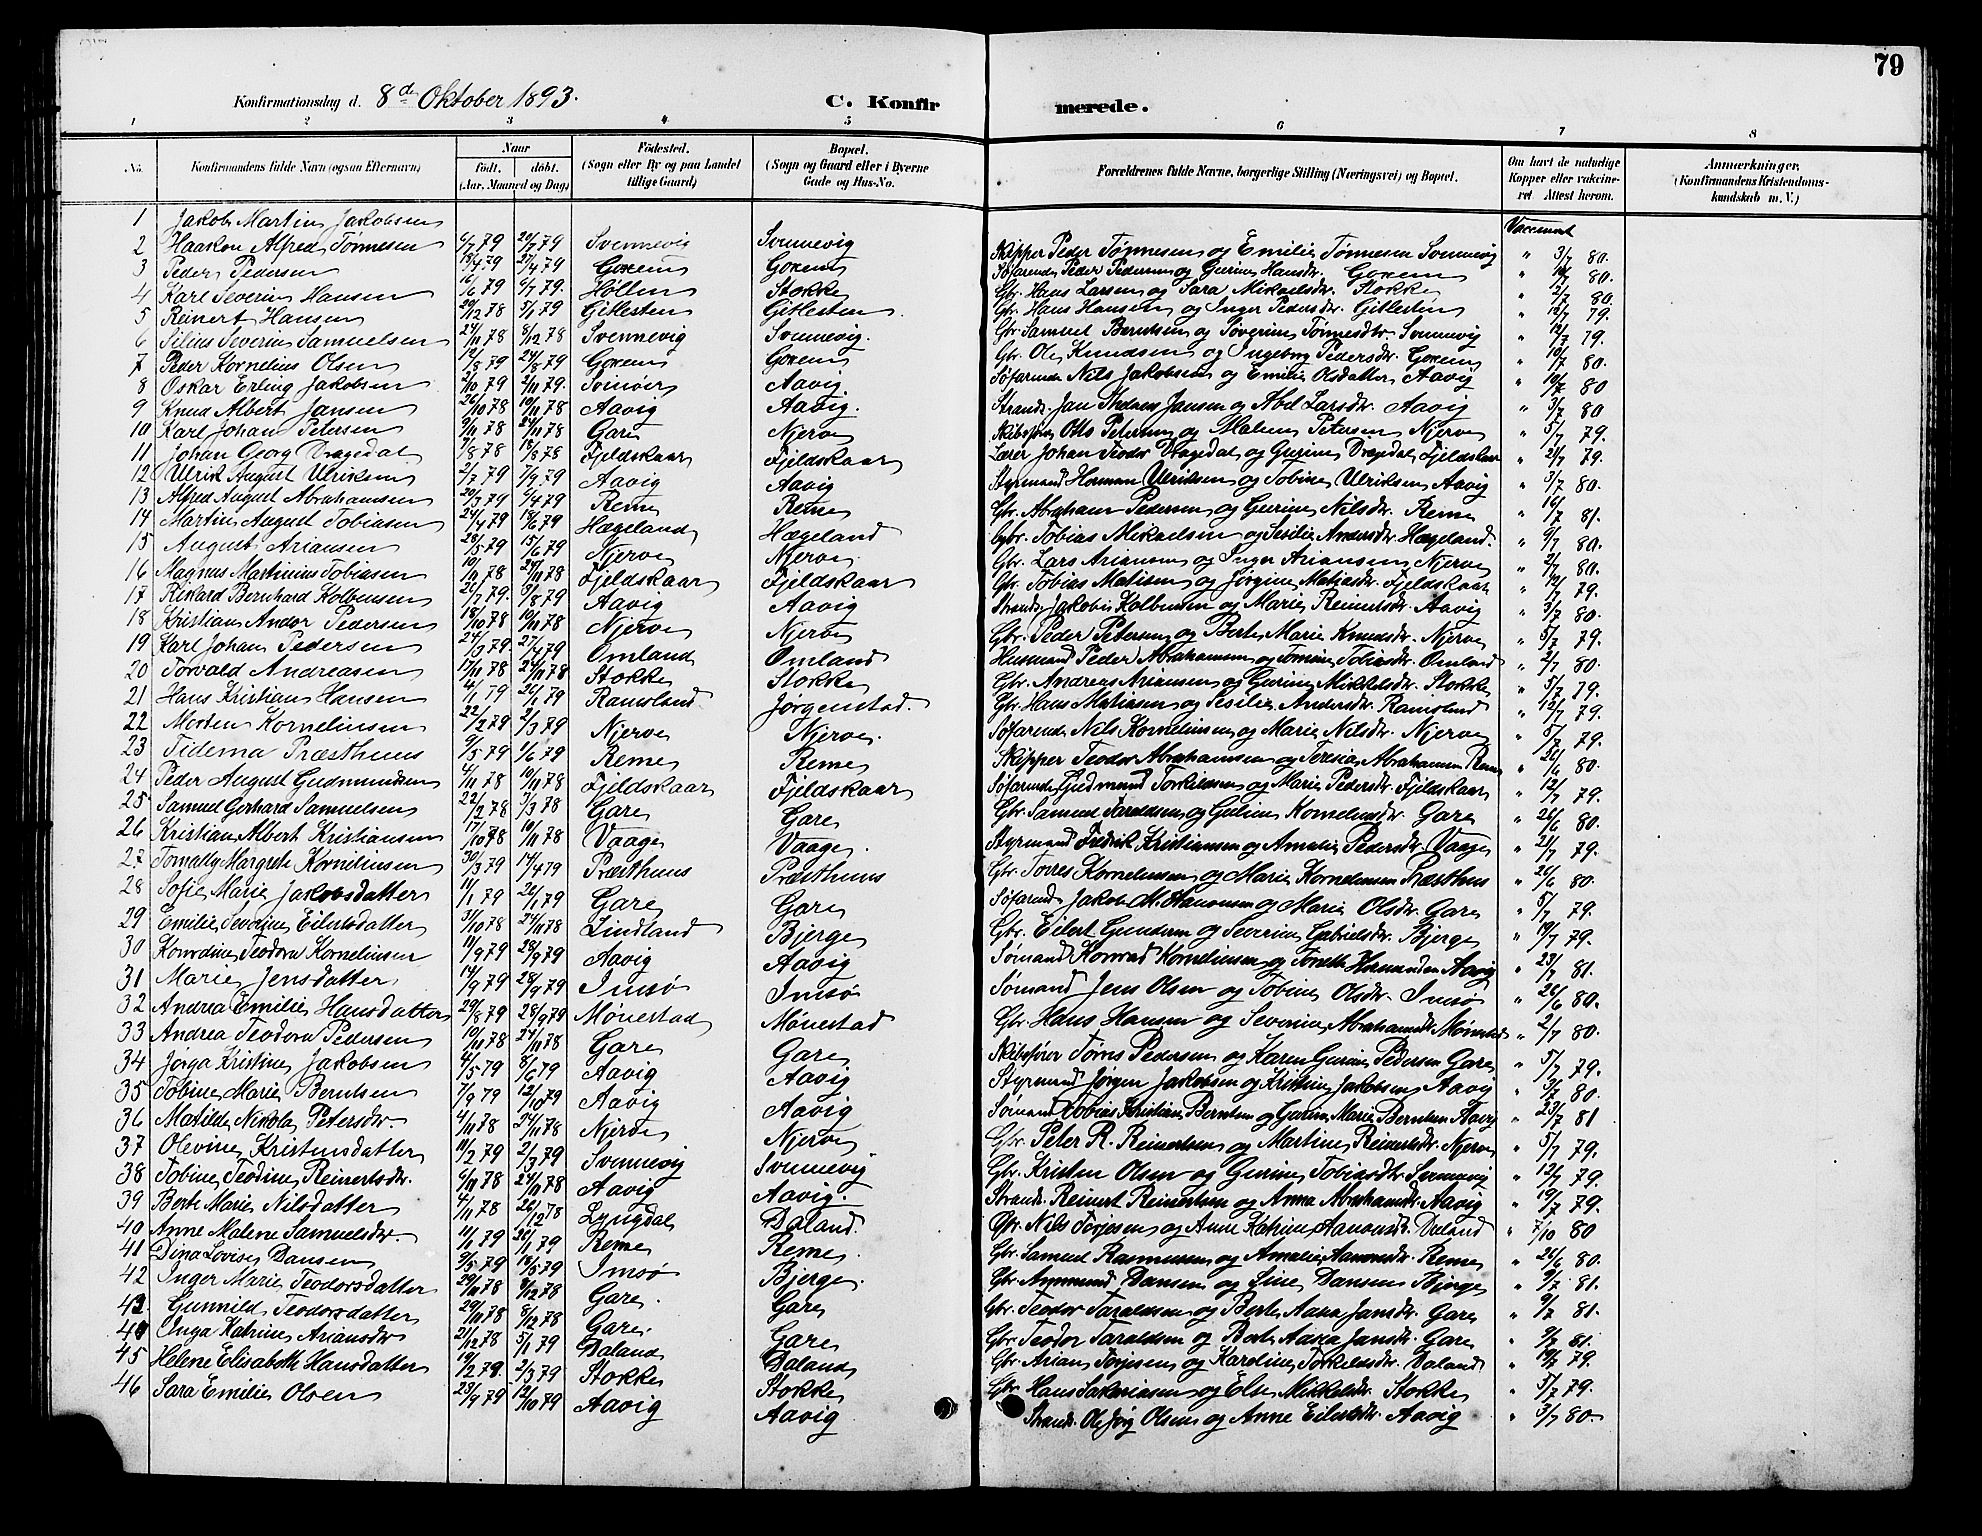 79
Konfirmationsdag d. 8de Oktober 1893. C. Konfirmerede.
1 2 3 4 5 6 7 8
No. Konfirmandens fulde Navn (ogsaa Efternavn) Naar født. døbt. (Aar, Maaned og Dag) Fødested. (Sogn eller By og paa Landet tillige Gaard) Bopæl. (Sogn og Gaard eller i Byerne Gade og Hus-No. Forældrenes fulde Navne, borgerlige Stilling (Næringsvei) og Bopæl. Om havt de naturlige Kopper eller vakcineret Attest herom. Anmærkninger, (Konfirmandens Kristendomskundskab m. V.)
1 Jakob Martin Jakobsen 6/7 79 20/7 79 Svennevig Svennevig Skipper Peder Tønnesen og Emilie Tønnesen Svennevig Vaccineret " 3/7 80.
2 Haakon Alfred Tønnesen 18/4 79 27/4 79 Goxem Goxem Søfarende Peder Pedersen og Gurine Hansdr. Goxem " 80.
3 Peder Pedersen 16/6 79 6/7 79. Hillen Stokke Gbr. Hans Larsen og Sara Mikaelsdr. Stokke " 2/7 80.
4 Karl Severin Hansen 29/12 78 5/1 79 Gitlesten Gitlesten Gbr. Hans Hansen og Inger Pedersdr. Gitlesten " 12/7 79.
5 Reinert Hansen 24/11 78 8/12 78 Svennevig Svennevig. Gbr. Samuel Berntsen og Søverine Tønnesdtr. Svennevig " 12/7 79.
6 Silius Severin Samuelsen 12/8 79 24/8 79 Goxem Goxem Gbr. Ole Knudsen og Ingeborg Pedersdr. Goxem " 10/7 80.
7 Peder Kornelius Olsen 2/10 79 2/11 79. Aavig Søfarende Nils Jakobsen og Emilie Olsdatter Aavig " 10/7 80
8 Oskar Erling Jakobsen 26/10 78 10/11 78 Aavig Aavig. Strands. Jan Jansen og Abel Larsdr. Aavig " 3/7 80
9 Knud Albert Jansen 9/11 78 24/11 78 Gare Njerve Skibsfører Otto Petersen og Malene Petersen Njerve " 5/7 79.
10 Karl Johan Petersen 7/8 78 18/8 78 Fjeldskaar Fjeldskaar Lærer Johan Teodor Dragedal og Gurine Dragedal Fjeldskaar " 2/7 79.
11 Johan Georg Dragedal 2/7 79 7/9 79 Aavig Aavig Styrmand Herman Ulriksen og Tobine Ulriksen Aavig " 3/7 80.
12 Ulrik August Ulriksen 20/3 79 6/4 79 Reme Reme Gbr. Abraham Pedersen og Gurine Nilsdr. Reme " 81.
13 Alfred August Abrahamsen 24/4 79 18/6 79 Hægeland Hægeland Gbr. Tobias Mikaelsen og Sesilie Andersdr. Hægeland. " 9/7 80.
14 Martin August Tobiasen 28/5 79 15/6 79 Njerve Njerve Gbr. Lars Ariansen og Inger Ariansen Njerve " 2/7 80.
15 August Ariansen 10/11 78 24/11 78 Fjeldskaar Fjeldskaar Gbr. Tobias Matisen og Jørgine Matiasdr. Fjeldskaar " 12/7 79.
16 Magnus Martinius Tobiasen 20/7 79. 3/8 79 Aavig Aavig Strands. Jakob Kolbensen og Marie Reinertsdr. Aavig " 3/7 80.
17 Rikard Bernhard Kolbensen 18/10 78 10/11 78 Njerve Njerve Gbr. Peder Petersen og Berte Marie Knudsdr. Njerve " 5/7 79.
18 Kristian Andor Pedersen 24/3 79. 27/4 79 Omland Omland Husmand Peder Abrahamsen og Tomine Tobiasdr. Omland " 2/7 80.
19 Karl Johan Pedersen 17/11 78 24/11 78 Stokke Stokke Gbr. Andreas Ariansen og Gurine Mikkelsdr. Stokke " 5/7 79.
20 Torvald Andreasen 4/1 79 26/1 79 Ramsland Jørgenstad. Gbr. Hans Matiasen og Sesilie Andersdr. Ramsland " 12/7 79.
21 Hans Kristian Hansen 22/2 79 2/3 79 Njerve Njerve. Søfarende Nils Kornelisen og Marie Nilsdr. Njerve " 5/7 79.
22 Morten Kornelinsen 9/5 79 1/6 79 Reme Reme Skipper Teodor Abrahamsen og Teresia Abrahamsen Reme " 26/6 80.
23 Tidema Præsthuus 4/11 78 10/11 78 Fjeldskaar Fjeldskaar Søfarende Gudmund Torkildsen og Marie Pedersdr. Fjeldskaar " 12/7 79.
24 Peder August Gudmundsen 22/2 78 3/3 78 Gare Gare Gbr. Samuel Taraldsen og Guline Kornelinsdr. Gare " 26/6 80.
25 Samuel Gerhard Samuelsen 17/10 78 10/11 78 Vaage Vaage. Styrmand Fredrik Kristiansen og Amalie Pedersdr. Vaage " 2/7 79.
26 Kristian Albert Kristiansen 30/3 79 14/4 79 Præsthuus Præsthuus Gbr. Torres Kornelinsen og Marie Kornelinsen Præsthus " 26/6 80.
27 Tomally Margrete Kornelinsen 11/1 79 26/1 79 Gare Gare Søfarende Jakob M. Aanonsen og Marie Olsdr. Gare " 5/7 79.
28 Sofie Marie Jakobsdatter 31/10 78 24/11 78 Lindland Bjerge Gbr. Eilert Gundersen og Severine Gabrielsdr. Bjerge " 19/7 79.
29 Emilie Severine Eilertsdatter 11/9 79 28/9 79 Aavig Aavig Sømand Konrad Kornelinsen og Aavig " 23/7 81.
30 Konradine Teodora Kornelinsen 14/9 79 28/9 79 Imsø Imsø Sømand Jens Olsen og Tobine Olsdr. Imsø " 26/6 80.
31 Marie Jensdatter 29/8 79 28/9 79 Mönestad Mönestad Gbr. Hans Hansen og Severine Abrahamsdtr. Mönestad " 2/7 80.
32 Andrea Emilie Hansdatter 10/11 78 24/11 78 Gare Gare Skibsfører Tørris Pedersen og Karen Gurine Pedersen Gare " 5/7 79.
33 Andrea Teodora Pedersen 4/5 79 8/6 79 Aavig Aavig Styrmand Jørgen Jakobsen og Kristine Jakobsen Aavig " 3/7 80.
34 Jørga Kristine Jakobsen 7/9 79 12/10 79 Aavig Aavig Sømand Tobias Kristian Berntsen og Gurine Marie Berntsen Aavig " 23/7 81
35 Tobine Marie Berntsen 4/11 78 24/11 78 Njerve Njerve Gbr. Peter R. Reinertsen og Martine Reinertsdr. Njerve " 5/7 79.
36 Matilde Nikola Petersdr. 11/2 79 2/3 79 Svennevig Svennevig Gbr. Kristen Olsen og Gurine Tobiasdtr. Svennevig " 12/7 79.
37 Olevine Kristensdatter 6/11 78 24/11 78 Aavig Aavig. Strands. Reinert Reinertsen og Anna Abrahamsdr. Aavig " 19/7 79.
38 Tobine Teodine Reinertsdr. 4/11 78 26/12 78 Lyngdal Daland. Gbr. Nils Torjesen og Anne Katrine Aanonsdr. Daland " 7/10 80
39 Berte Marie Nilsdatter 11/1 79 26/1 79 Reme Reme. Gbr. Samuel Rasmussen og Amalie Aanonsdr. Reme " 26/6 80.
40 Anne Malene Samuelsdr. 9/5 79 18/5 79 Imsø Bjerge. Gbr. Aanmund Dansen og Line Dansen Bjerge " 9/7 81.
41 Dina Lovise Dansen 29/11 78 8/12 78 Gare. Gare Gbr. Teodor Taraldsen og Berte Aasa Jansdr. Gare " 9/7 81.
42 Inger Marie Teodorsdatter 29/11 78 8/12 78 Gare. Gare Gbr. Teodor Taraldsen og Berte Aasa Jansdr. Gare " 9/7 81.
43 Gunnild Teodorsdatter 21/12 78 5/1 79 Daland Daland Gbr. Arian Torjesen og Karoline Torkelsdr. Daland " 19/7 79.
44 Inga Katrine Ariansdr. 19/2 79. 2/3 79 Stokke Stokke Gbr. Hans Sakariasen og Else Mikkelsdr. Stokke " 5/7 79.
45 Helene Elisabeth Hansdatter 23/9 79 12/10 79 Aavig Aavig Strands. Ole Jørg Olsen og Anne Eilertsdr. Aavig " 3/7 80.
46 Sara Emilie Olsen